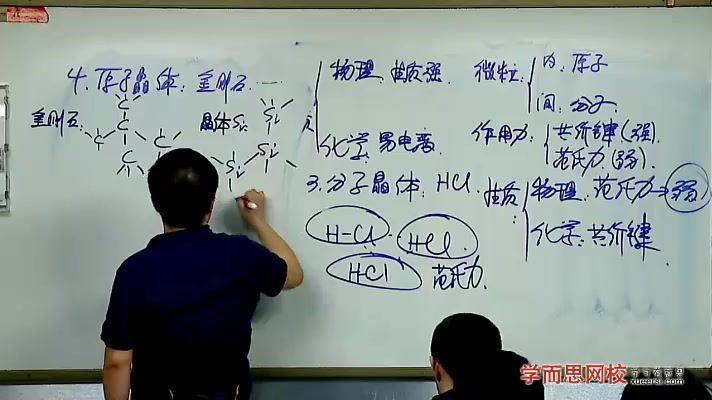 4. 原子晶体: 金刚石. ……
金刚石:
C
C
C
C
C
晶体Si:
Si
Si
Si
物理: 性质强.
化学: 易电离
微粒
内: 原子
间: 分子.
作用力:
共价键(强).
范氏力(弱).
3. 分子晶体: HCl.
性质:
物理: 范氏力→弱
化学: 共价键
H-Cl
HCl.
HCl
范氏力.
学而思网校
xueersi.com